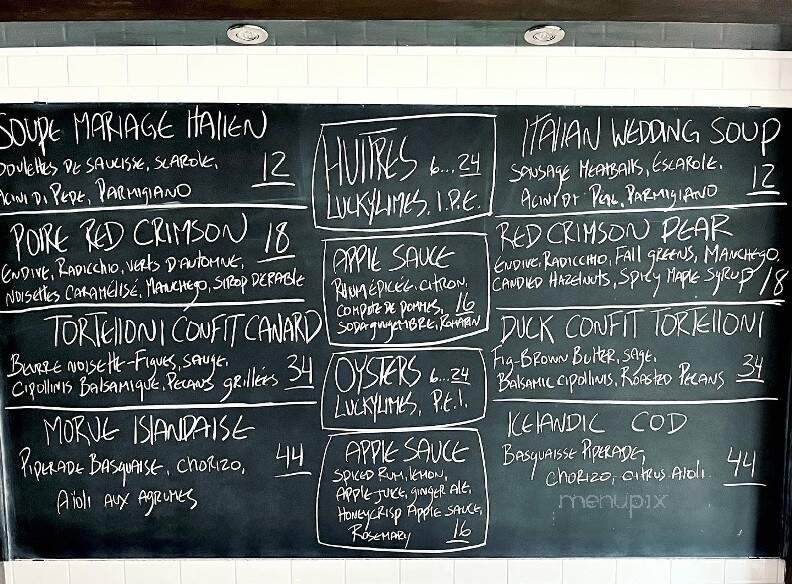 SOUPE MARIAGE ITALIEN
BOULETTES DE SAUCISSE, SCAROLE,
ACINI DI PEPE, PARMIGIANO 12
POIRE RED CRIMSON 18
ENDIVE, RADICCHIO, VERTS D'AUTOMNE,
NOISETTES CARAMÉLISÉ, MANCHEGO, SIROP DÉRABLE
TORTELLONI CONFIT CANARD
BEURRE NOISETTE-FIGUES, SAUGE,
CIPOLLINIS BALSAMIQUE, PECANS GRILLÉES 34
MORUE ISLANDAISE
PIPERADE BASQUAISE, CHORIZO, 44
AÏOLI AUX AGRUMES
HUITRES 6...24
LUCKYLIMES, I.P.E.
APPLE SAUCE
RHUM ÉPICÉE, CITRON,
COMPOTE DE POMMES, 16
SODA GINGEMBRE, ROMARIN
OYSTERS 6...24
LUCKYLIMES, P.E.I.
APPLE SAUCE
SPICED RUM, LEMON,
APPLE JUICE, GINGER ALE,
HONEYCRISP APPLE SAUCE,
ROSEMARY 16
ITALIAN WEDDING SOUP
SAUSAGE MEATBALLS, ESCAROLE,
ACINI DI PEPE, PARMIGIANO 12
RED CRIMSON PEAR
ENDIVE, RADICCHIO, FALL GREENS, MANCHEGO,
CANDIED HAZELNUTS, SPICY MAPLE SYRUP 18
DUCK CONFIT TORTELLONI
FIG-BROWN BUTTER, SAGE,
BALSAMIC CIPOLLINIS, ROASTED PECANS 34
ICELANDIC COD
BASQUAISSE PIPERADE,
CHORIZO, CITRUS AIOLI. 44
menupix